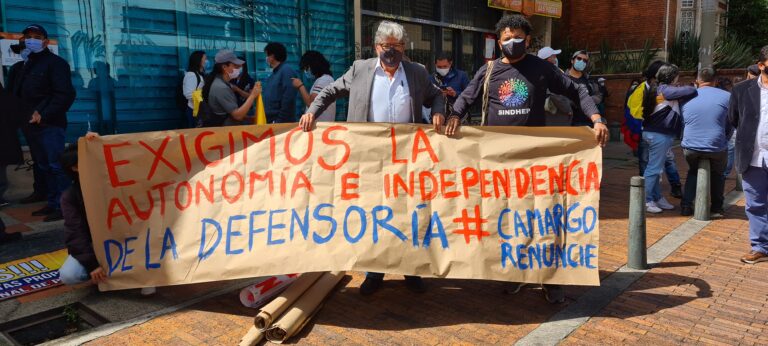 EXIGIMOS LA
AUTONOMÍA E INDEPENDENCIA
DE LA DEFENSORÍA # CAMARGO
RENUNCIE
SINDHEP